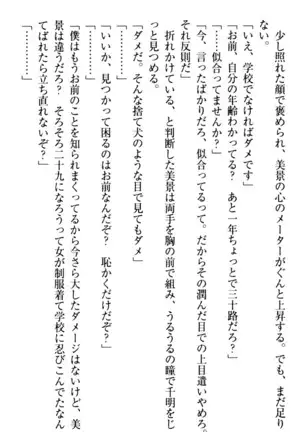 少し照れた顔で褒められ、美景の心のメーターがぐんと上昇する。でも、まだ足り
ない。
「いえ、学校でなければダメです」
「お前、自分の年齢わかってる？　あと一年ちょっとで三十路だろ？」
「……似合ってませんか？」
「今、言ったばかりだろ、似合ってるって。だからその潤んだ目での上目遣いやめろ。
それ反則だ」
　折れかけている、と判断した美景は両手を胸の前で組み、うるうるの瞳で千明をじ
っと見つめる。
「ダメだ。そんな捨て犬のような目で見てもダメ」
「………………」
「いいか、見つかって困るのはお前なんだぞ？　恥かくだけだぞ？」
「………………」
「僕はもうお前のことを知られまくってるから今さら大したダメージはないけど、美
景は違うだろ？　そろそろ二十九になろうって女が制服着て学校に忍びこんでたなん
てばれたら立ち直れないぞ？」